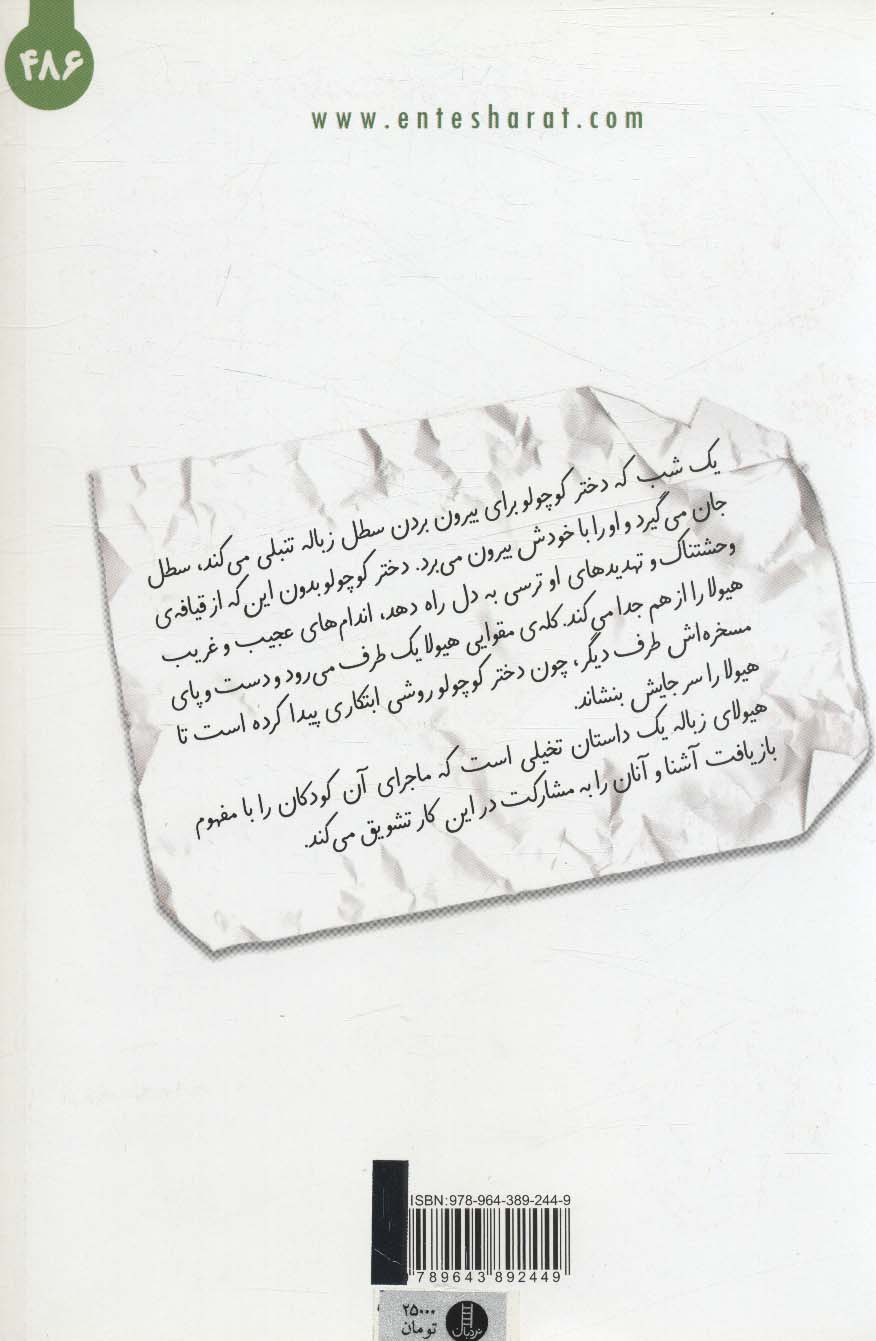 ۴۸۶
www.entesharat.com
یک شب که دختر کوچولو برای بیرون بردن سطل زباله تنبلی می‌کند، سطل
جان می‌گیرد و او را با خودش بیرون می‌برد. دختر کوچولو بدون این که از قیافه‌ی
وحشتناک و تهدیدهای او ترسی به دل راه دهد، اندام‌های عجیب و غریب
هیولا را از هم جدا می‌کند. کله‌ی مقوایی هیولا یک طرف می‌رود و دست و پای
مسخره‌اش طرف دیگر، چون دختر کوچولو روشی ابتکاری پیدا کرده است تا
هیولا را سر جایش بنشاند.
هیولای زباله یک داستان تخیلی است که ماجرای آن کودکان را با مفهوم
بازیافت آشنا و آنان را به مشارکت در این کار تشویق می‌کند.
ISBN:978-964-389-244-9
789643 892449
۲۵۰۰۰
تومان
نردبان